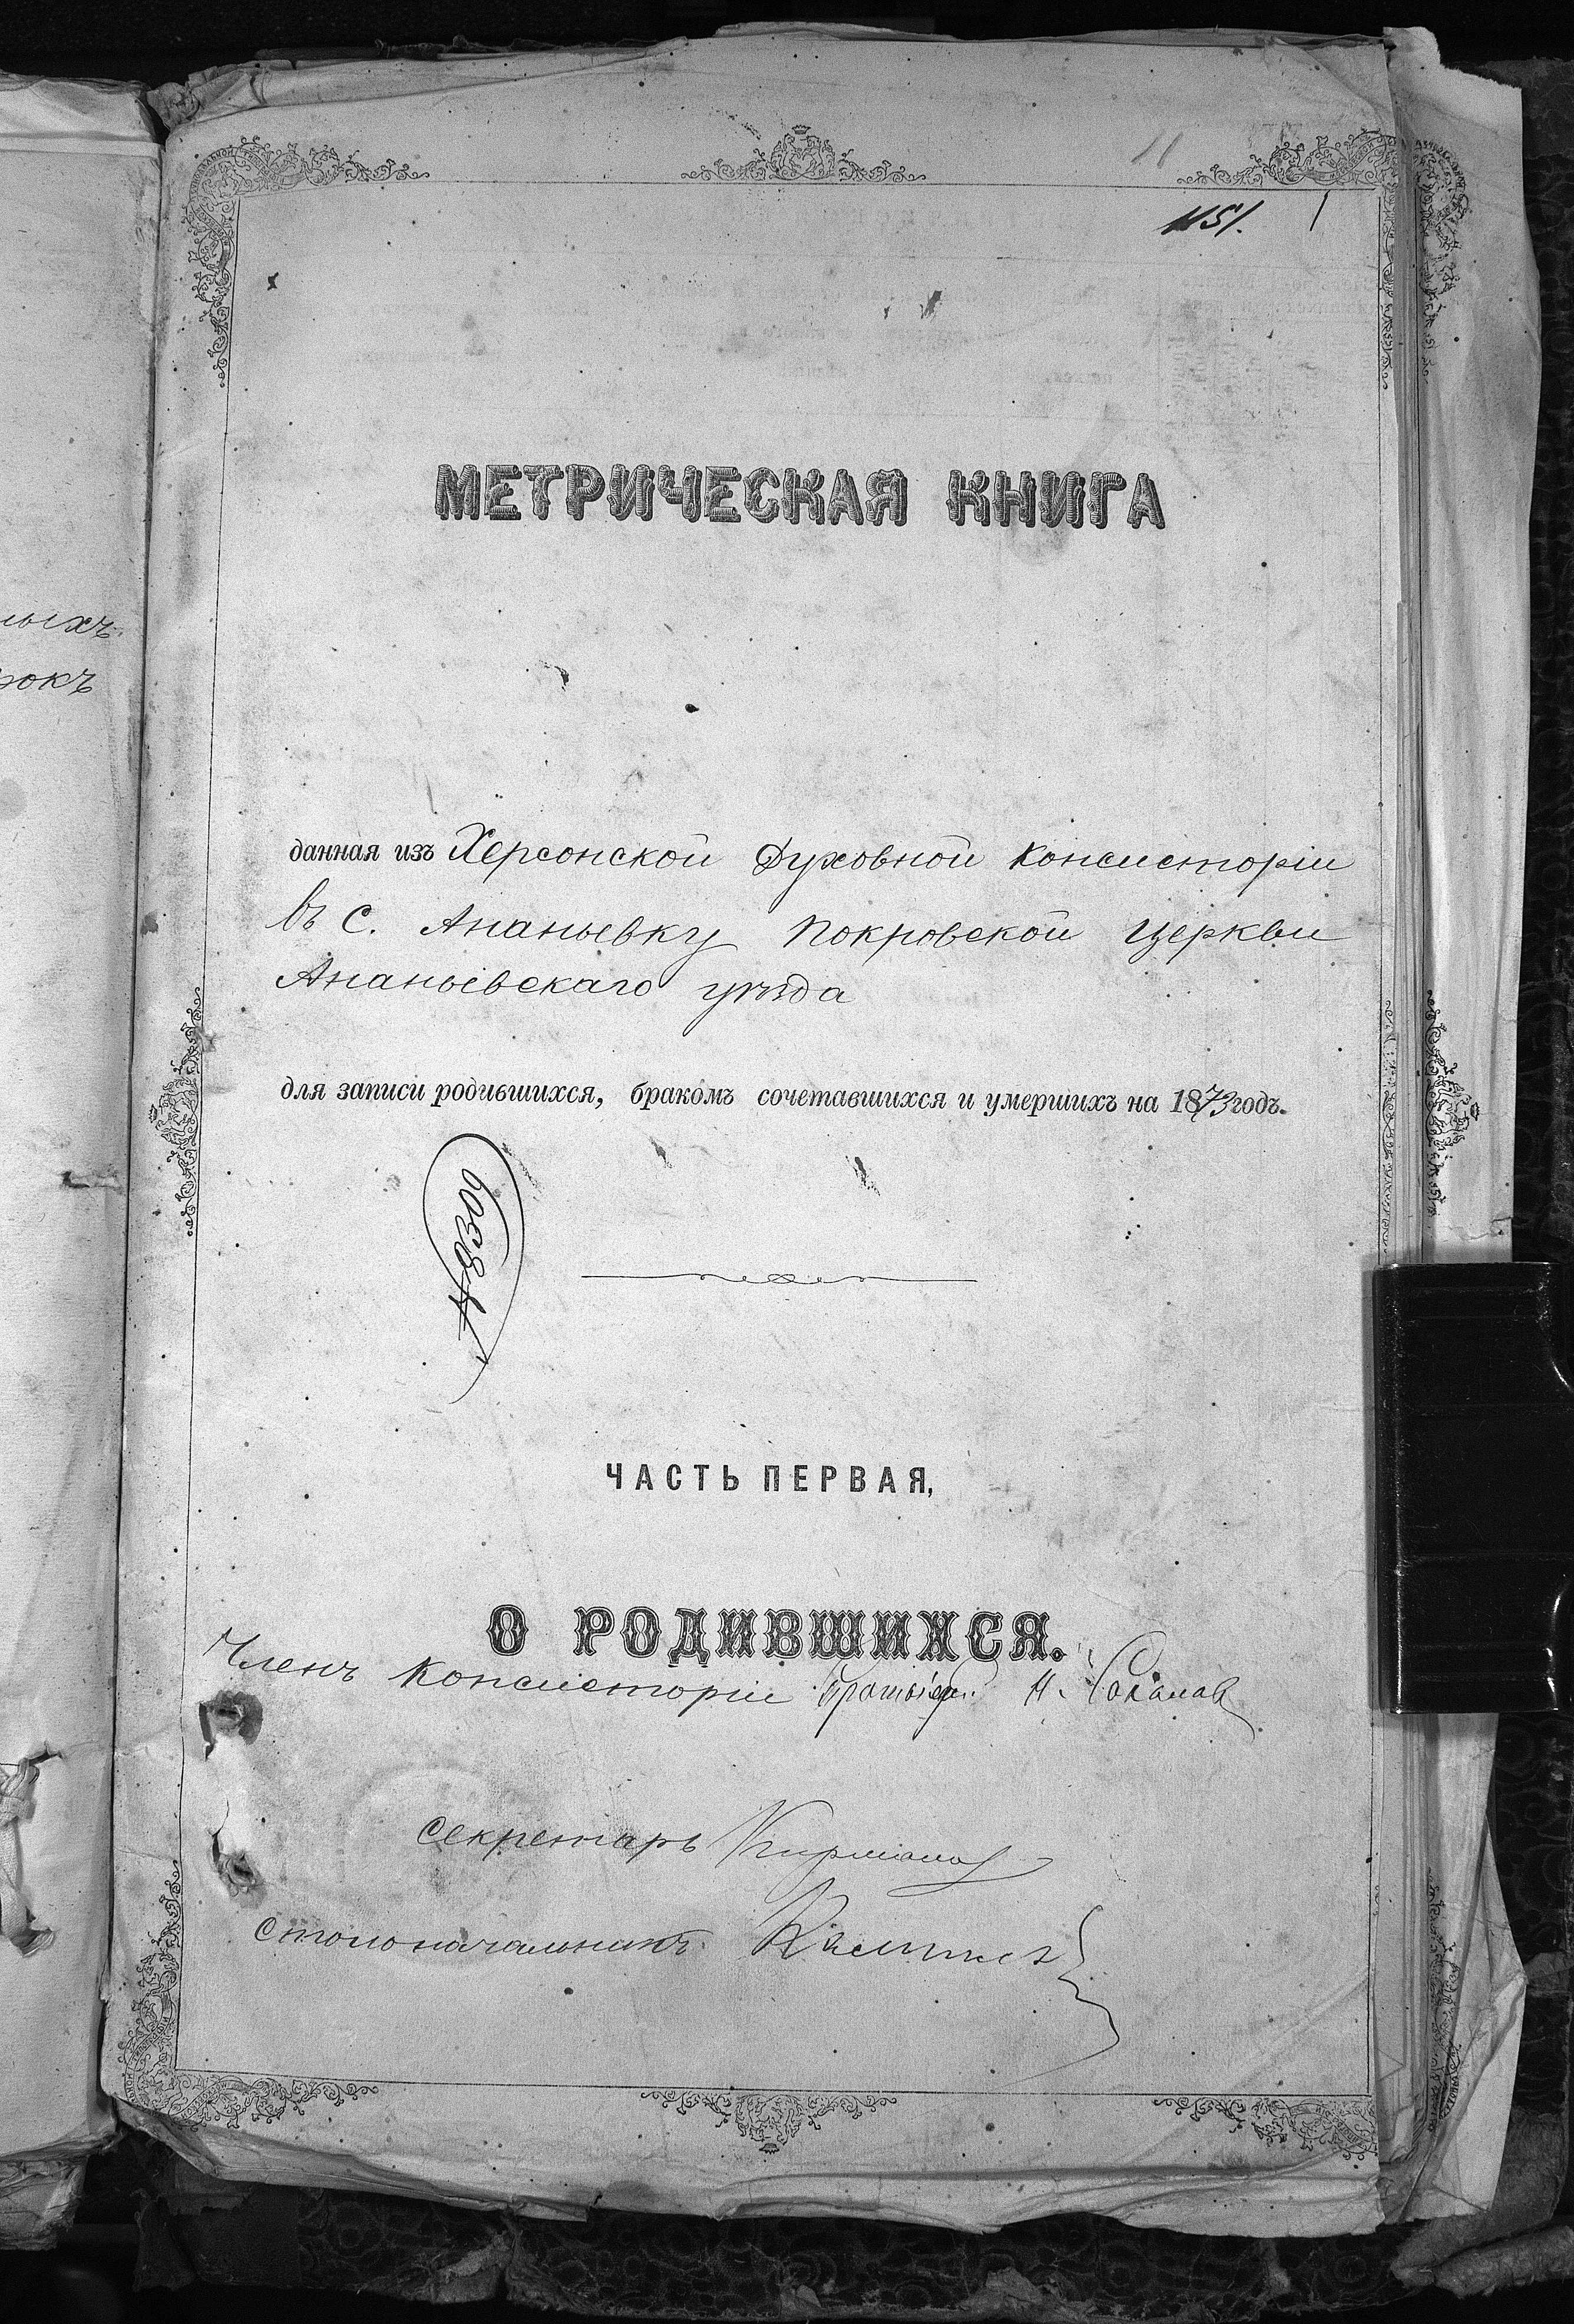 1151. 1
МЕТРИЧЕСКАЯ КНИГА
ыхъ
рокъ
данная изъ Херсонской Духовной Консисторіи
въ с. Ананьевку Покровской церкви
Ананьевскаго уѣзда
для записи родившихся, бракомъ сочетавшихся и умершихъ на 1873 годъ.
ЧАСТЬ ПЕРВАЯ,
О РОДИВШИХСЯ.
Членъ Консисторіи Н.
Секретарь
Столоначальникъ